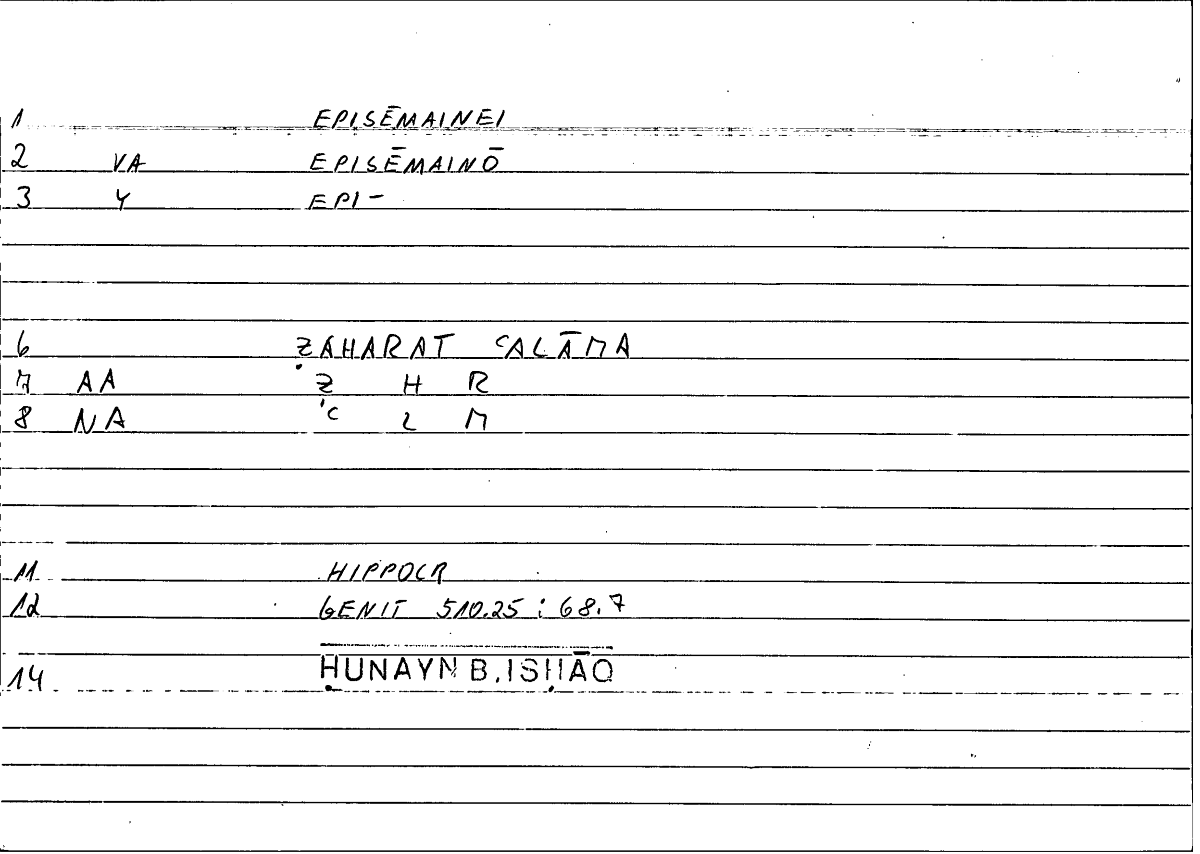 1 EPISĒMAINEI
2 VA EPISĒMAINŌ
3 Y EPI-
6 ẒAHARAT ʿALĀMA
7 AA Ẓ H R
8 NA ʿ L M
11 HIPPOCR
12 GENIT 510.25 : 68.7
14 ḤUNAYN B. ISḤĀQ